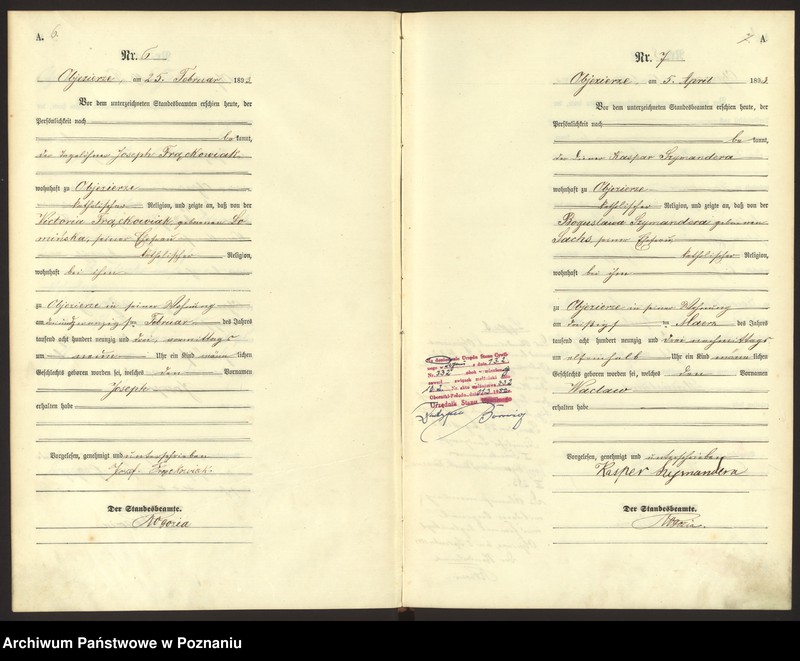 A. 6.
Nr. 6
Objezierze, am 25. Februar 1893
Vor dem unterzeichneten Standesbeamten erschien heute, der
Persönlichkeit nach
bekannt,
der Tagelöhner Joseph Frąckowiak
wohnhaft zu Objezierze
katholischer Religion, und zeigte an, daß von der
Victoria Frąckowiak geborenen
seiner Ehefrau
katholischer Religion,
wohnhaft bei ihm
zu Objezierze in seiner Wohnung
am dreiundzwanzigsten Februar des Jahres
tausend acht hundert neunzig und drei, vormittags
um neun Uhr ein Kind männlichen
Geschlechts geboren worden sei, welches den Vornamen
Joseph
erhalten habe
Vorgelesen, genehmigt und unterschrieben
Józef Frąckowiak
Der Standesbeamte.
7. A
Nr. 7
Objezierze, am 5. April 1893.
Vor dem unterzeichneten Standesbeamten erschien heute, der
Persönlichkeit nach
bekannt,
der Diener Kaspar Szymandera
wohnhaft zu Objezierze
katholischer Religion, und zeigte an, daß von der
Boguslawa Szymandera geborenen
Sachs, seiner Ehefrau
katholischer Religion,
wohnhaft bei ihm
zu Objezierze in seiner Wohnung
am dreißigsten Maerz des Jahres
tausend acht hundert neunzig und drei nachmittags
um elfeinhalb Uhr ein Kind männlichen
Geschlechts geboren worden sei, welches den Vornamen
Waclaw
erhalten habe
Vorgelesen, genehmigt und unterschrieben
Kasper Szymandera
Der Standesbeamte.
Urzędnik Stanu
Archiwum Państwowe w Poznaniu